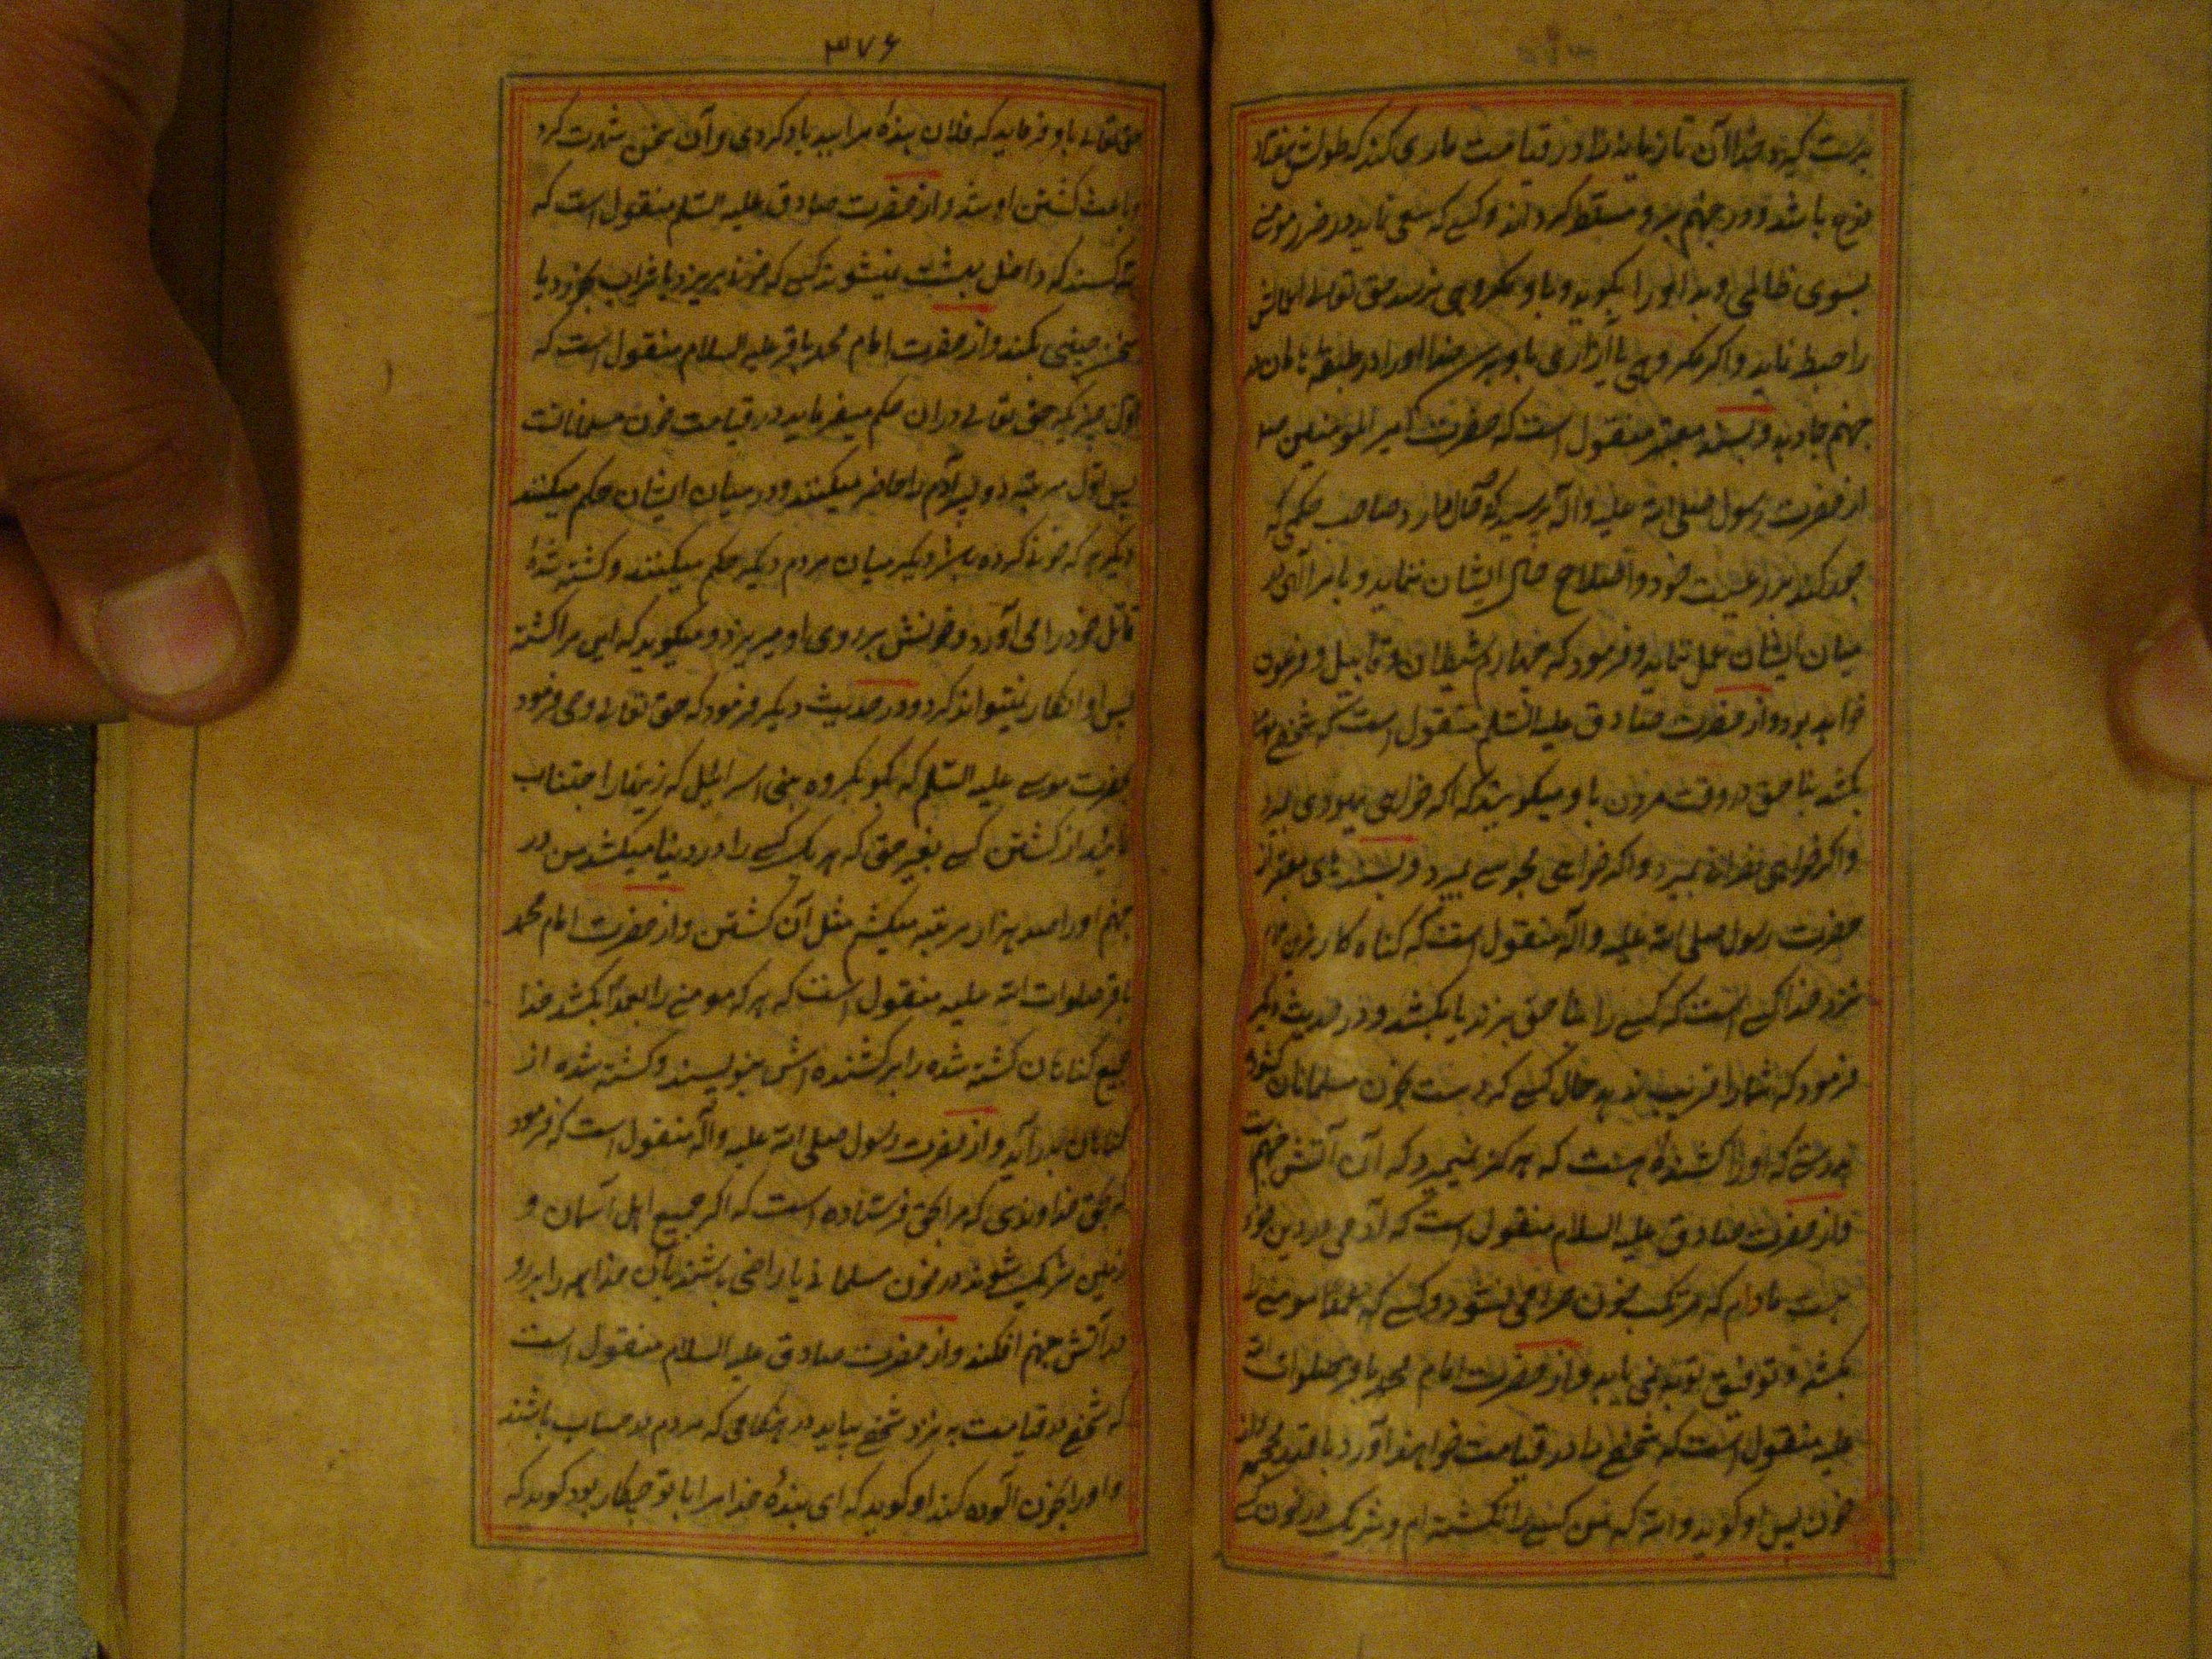 بدست گیرد خدا آن تازیانه را در قیامت ماری کند که طولش هفتاد
ذرع باشد و در جهنم برو مسلط گرداند و کسے که سعی نماید در ضرر مومنی
بسوی ظالمی و بد او را بگوید و باو مکروهی نرسد حق تعالے اعمالش
را ضبط نماید و اگر مکروهی یا آزاری باو برسد خدا او را در طبقه هامان در
جهنم جا دهد و بسند معتبر منقول است که حضرت امیر المومنین
از حضرت رسول صلی الله علیه و آله پرسید که صاحب حکمی که
جور کند بر رعیت خود و اصلاح حال ایشان ننماید و بامر الهی در
میان ایشان عمل ننماید فرمود که چهارم شیطان و قابیل و فرعون
خواهد بود و از حضرت صادق علیه السلم منقول است که شخصے
بکشد بناحق در وقت مردن باو میگویند که اگر خواهی یهودی بمیر
و اگر خواهی نصرانے بمیر و اگر خواهی مجوسے بمیر و بسندهای معتبر از
حضرت رسول صلی الله علیه و آله منقول است که گناه کارترین
نزد خدا کسے است که کسے را بناحق بزند یا بکشد و در حدیث دیگر
فرمود که شما را فریب ندهد حال کسے که دست بخون مسلمانان گشود
بدرستے که او را کشنده هست که هرگز نمیمیرد که آن آتش جهنم است
و از حضرت صادق علیه السلام منقول است که آدمی در دین خود
هست مادام که مرتکب خون حرامی نشود و کسے که عمدا مومنے را
بکشد توفیق توبه نمی یابد و از حضرت امام محمد باقر صلوات الله
علیه منقول است که شخصے را در قیامت خواهند آورد با قدر محجمه از
خون پس او گوید والله که من کسے را نکشته ام و شریک در خون کسے
۳۷۶
حق تعالے باو فرماید که فلان بنده مرا ببد یاد کردی و آن سخن شهرت کرد
و باعث کشتن او شد و از حضرت صادق علیه السلم منقول است که
سه کسند که داخل بهشت نمیشوند کسے که خون بریزد یا شراب بخورد یا
سخن چینی بکند و از حضرت امام محمد باقر علیه السلام منقول است که
اول چیزیکه حق تعالے در ان حکم میفرماید در قیامت خون مسلمانانست
پس اول مرتبه دو پسر آدم را حاضر میکنند و در میان ایشان حکم میکنند
دیگر هر که خونے کرده باشد دیگر میان مردم دیگر حکم میکنند و کشته شده
قاتل خود را می آورد و خونش بر روی او میریزد و میگوید که این مرا کشته
پس او انکار نمیتواند کرد و در حدیث دیگر فرمود که حق تعالے وحی فرمود
بحضرت موسے علیه السلم که بگو بگروه بنی اسرائیل که زینهار اجتناب
نمائید از کشتن کسے بغیر حق که هر یک کسے را در دنیا میکشد من در
جهنم او را صد هزار مرتبه میکشم مثل آن کشتن و از حضرت امام محمد
باقر صلوات الله علیه منقول است که هر که مومنے را بعمدا بکشد خدا
جمیع گناهان کشته شده را بر کشنده اش مینویسند و کشته شده از
گناهان بدر آید و از حضرت رسول صلی الله علیه و آله منقول است که فرمود
که بحق خداوندی که مرا بحق فرستاده است که اگر جمیع اهل آسمان و
زمین شریک شوند در خون مسلمانے یا راضی باشند بآن خدا همه را برو
در آتش جهنم افکند و از حضرت صادق علیه السلام منقول است
که شخصے در قیامت به نزد شخصے بیاید در هنگامی که مردم در حساب باشند
و او را بخون آلوده کند او گوید که ای بنده خدا مرا با تو چکار بود گوید که